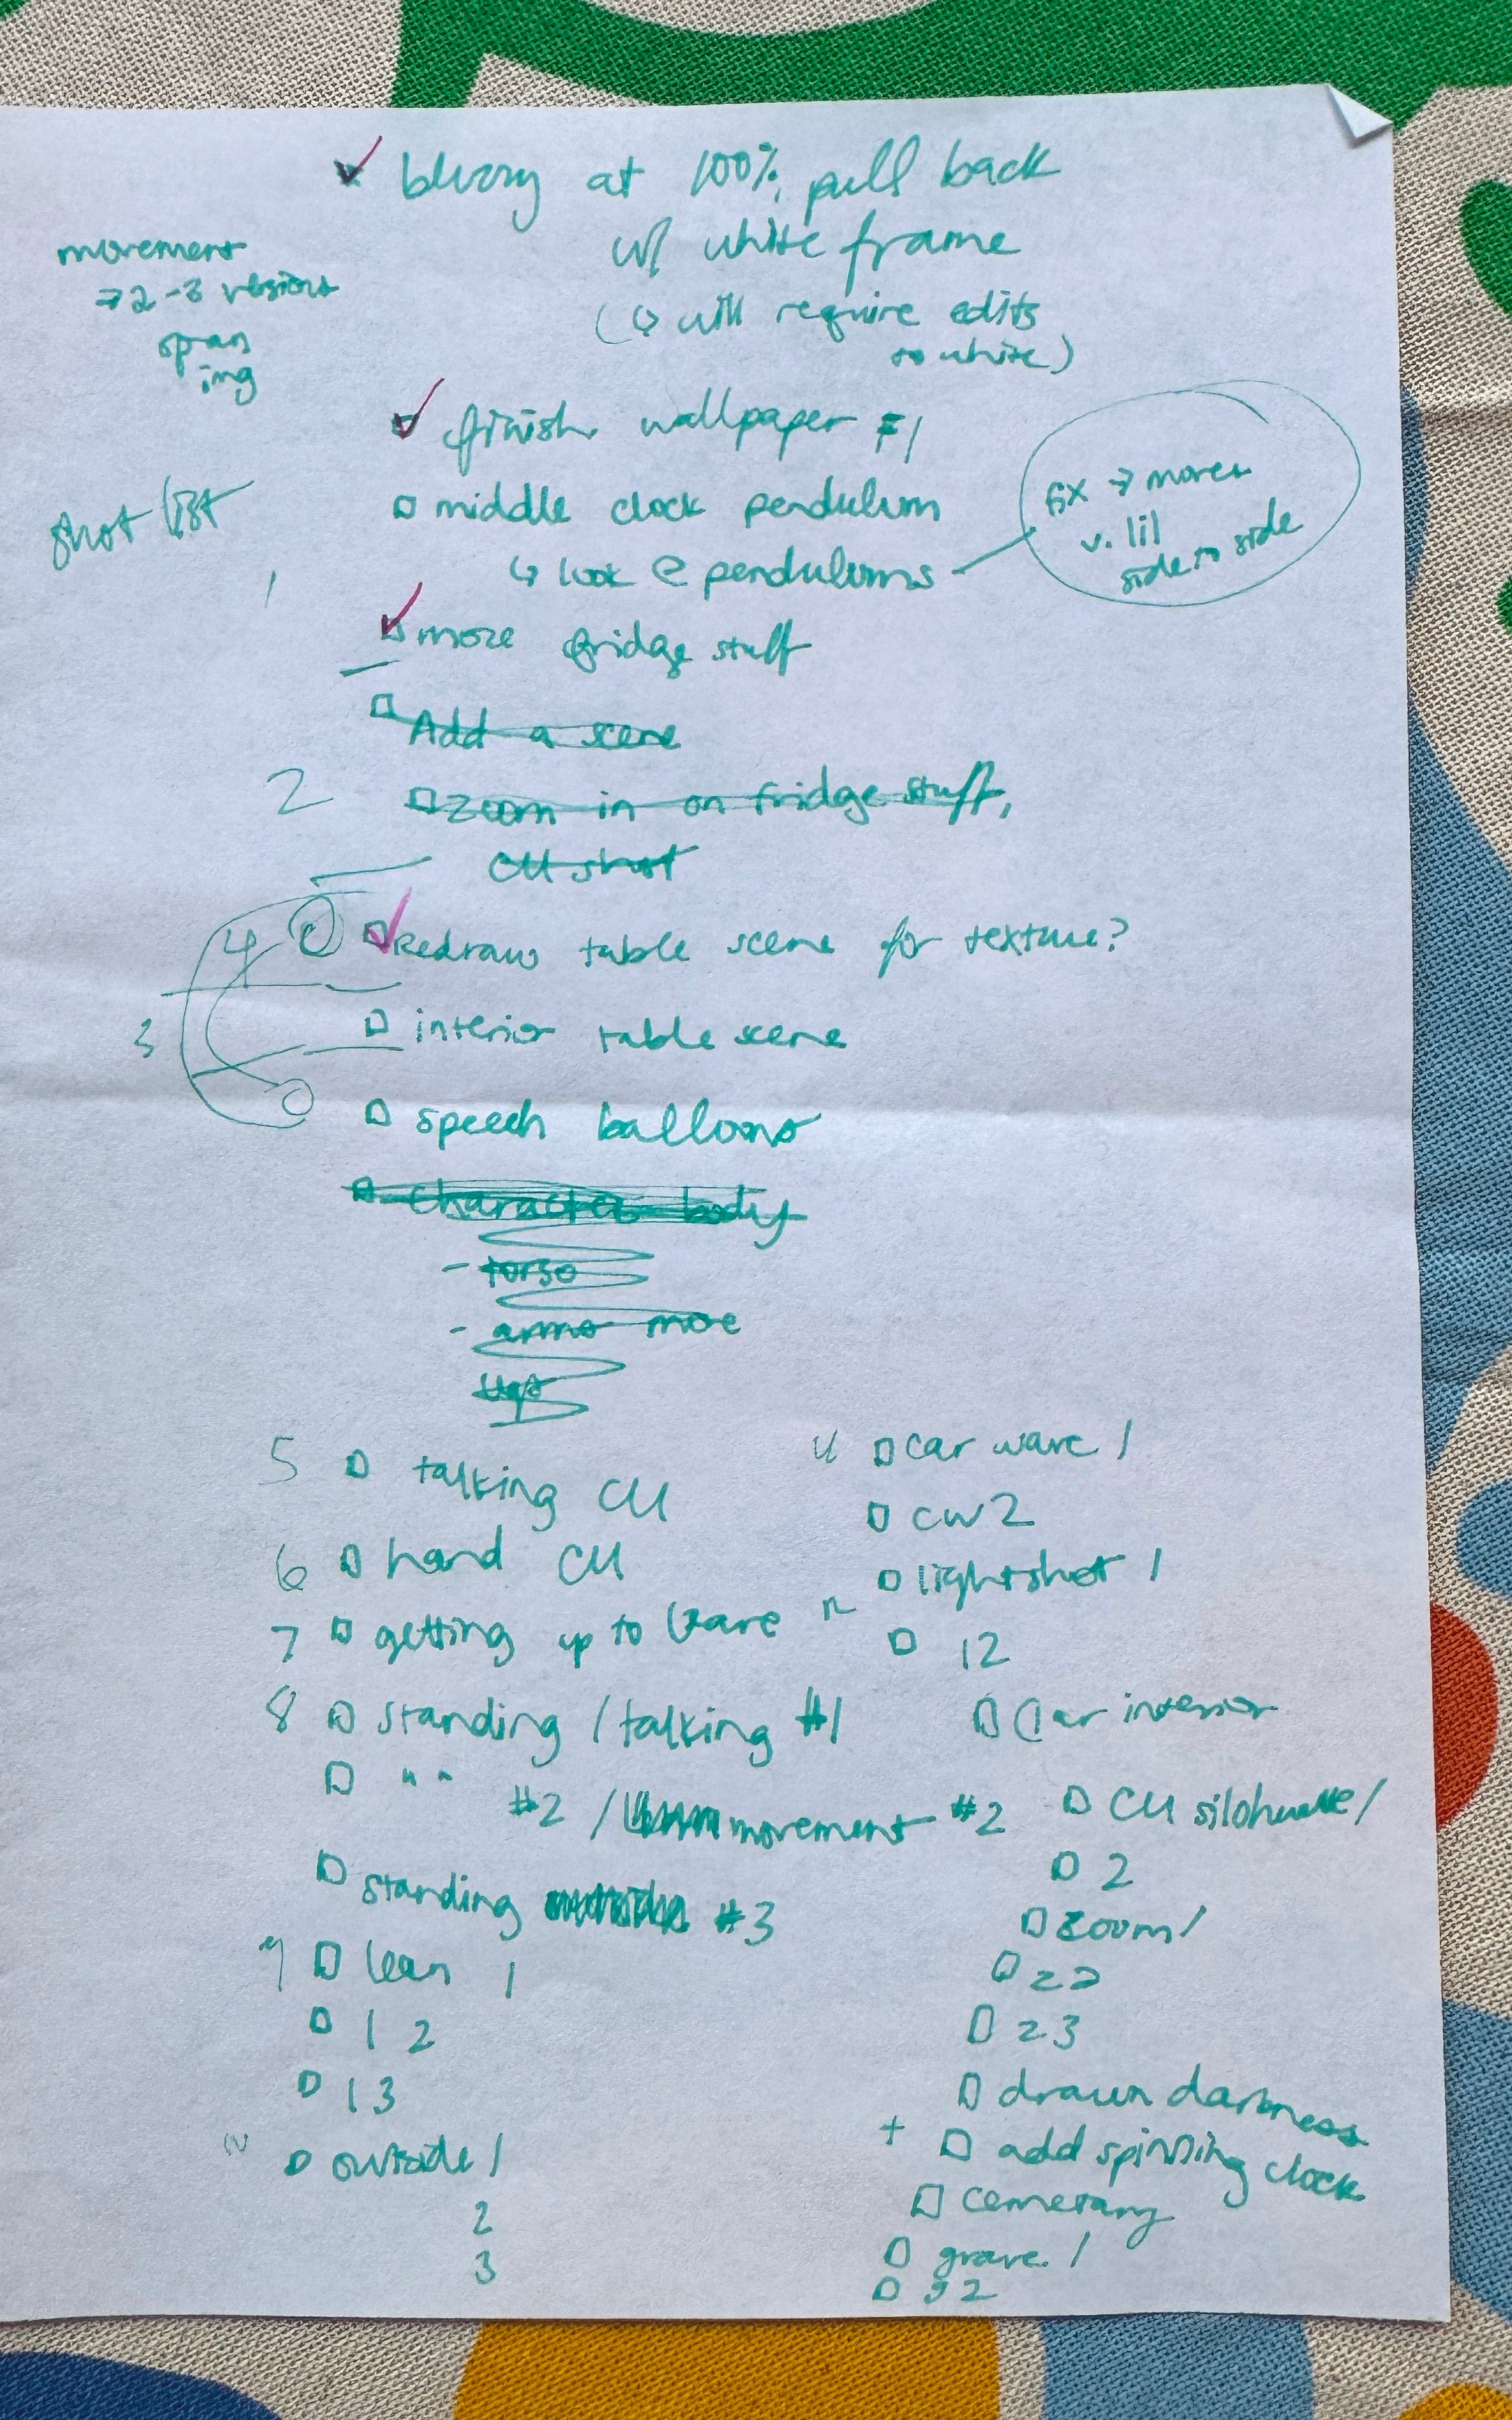 blurry at 100%, pull back
w/ white frame
(↳ will require edits
to white)
movement
→ 2-3 versions
span
ing
finish wallpaper #1
shot list
1
□ middle clock pendulum
↳ look @ pendulums
fix → moves
v. lil
side to side
□ more fridge stuff
□ Add a scene
2 □ zoom in on fridge stuff,
CU shot
4 □ Redraw table scene for texture?
3 □ interior table scene
□ speech balloons
□ character body
- torso
- arms more
5 □ talking CU
6 □ hand CU
7 □ getting up to leave
8 □ standing / talking #1
□ " " #2 / movement #2
□ standing #3
9 □ lean 1
□ l 2
□ l 3
10 □ outside 1
2
3
11 □ car wave 1
□ CW 2
12 □ lightshot 1
□ l2
□ Car interior
□ CU silohuette 1
□ 2
□ zoom 1
□ z2
□ z3
□ drawn darkness
+ □ add spinning clock
□ cemetary
□ grave 1
□ g2